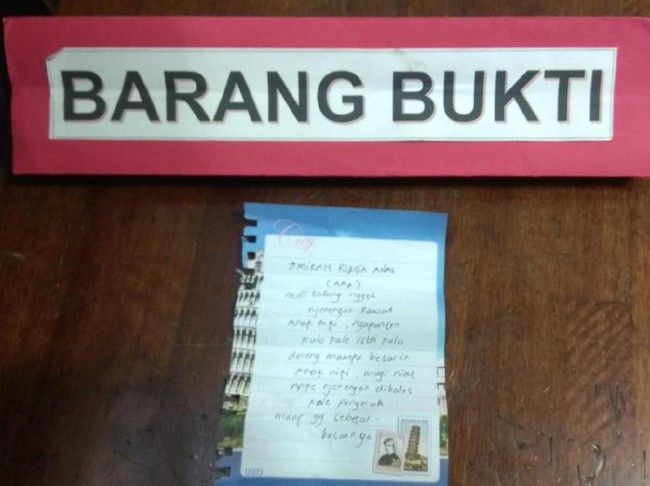 BARANG BUKTI
City
AMIRAH RIDOTA ANAS
(ARA)
tolong
njenengan Rawat
Anak niki, ngapunten
kulo kale istri kulo
dereng mampu besarin
Anak niki, mugi niat
njenengan dibales
kale pengeran
maaf yg sebesar
besarnya